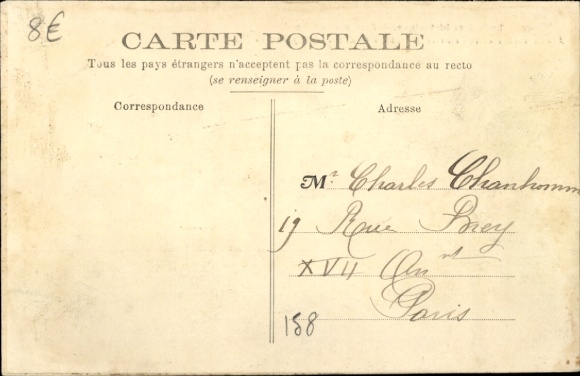 8€
CARTE POSTALE
Tous les pays étrangers n'acceptent pas la correspondance au recto
(se renseigner à la poste)
Correspondance
Adresse
Mr Charles Chanhomm
19 Rue Brey
XVII Arrt
Paris
158